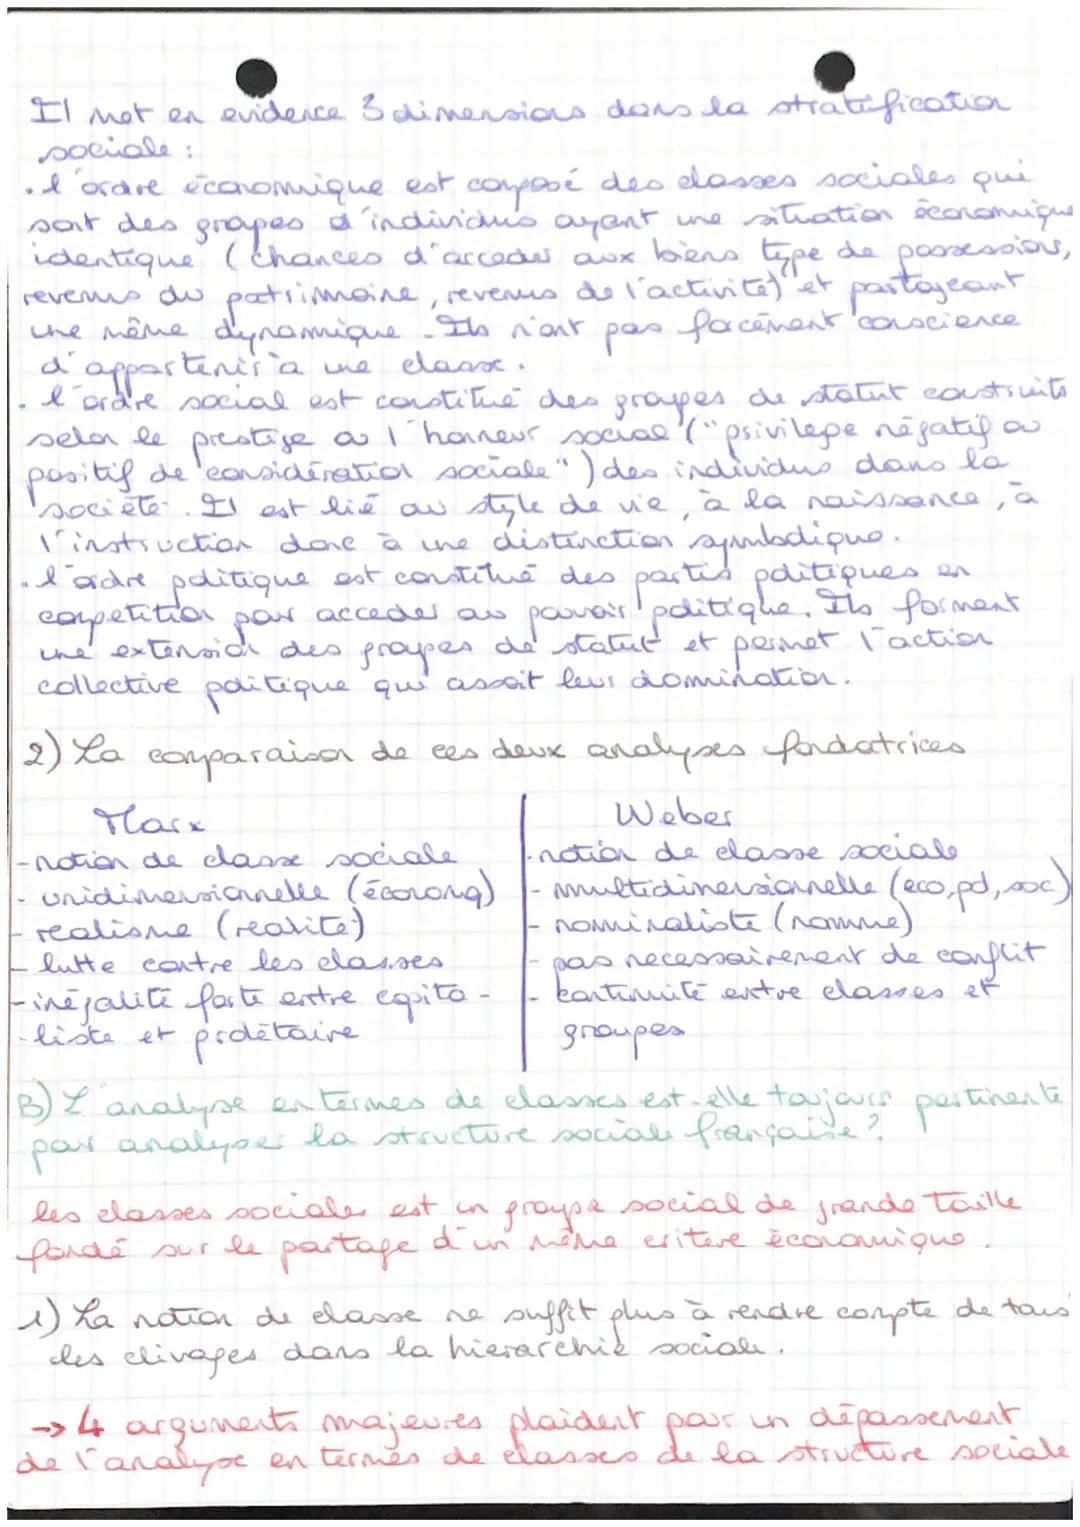 Il met en evidence 3 dimensions dans la stratification
sociale :
. l'ordre économique est composé des classes sociales qui
sont des groupes d'individus ayant une situation économique
identique (chances d'acceder aux biens type de possessions,
revenus du patrimoine, revenus de l'activité) et partageant
une même dynamique. Ils n'ont pas forcément conscience
d'appartenir à une classe.
. l'ordre social est constitué des groupes de statut construits
selon le prestige ou l'honneur social ("privilege négatif ou
positif de considération sociale") des individus dans la
société. Il est lié au style de vie, à la naissance, à
l'instruction donc à une distinction symbolique.
. l'ordre politique est constitué des partis politiques en
competition pour acceder au pouvoir politique. Ils forment
une extension des groupes de statut et permet l'action
collective politique qui assoit leur domination.
2) La comparaison de ces deux analyses fondatrices
Marx
- notion de classe sociale
- unidimensionnelle (économq)
- realisme (réalité)
- lutte contre les classes
- inégalité forte entre capita-
liste et prolétaire
Weber
- notion de classe sociale
- multidimensionnelle (eco, pol, soc)
- nominaliste (nomme)
- pas necessairement de conflit
- continuité entre classes et
groupes
B) L'analyse en termes de classes est-elle toujours pertinente
pour analyser la structure sociale française ?
les classes sociales est un groupe social de grande taille
fondé sur le partage d'un même critere économique.
1) La notion de classe ne suffit plus à rendre compte de tous
les clivages dans la hierarchie sociale.
→ 4 arguments majeures plaident pour un dépassement
de l'analyse en termes de classes de la structure sociale